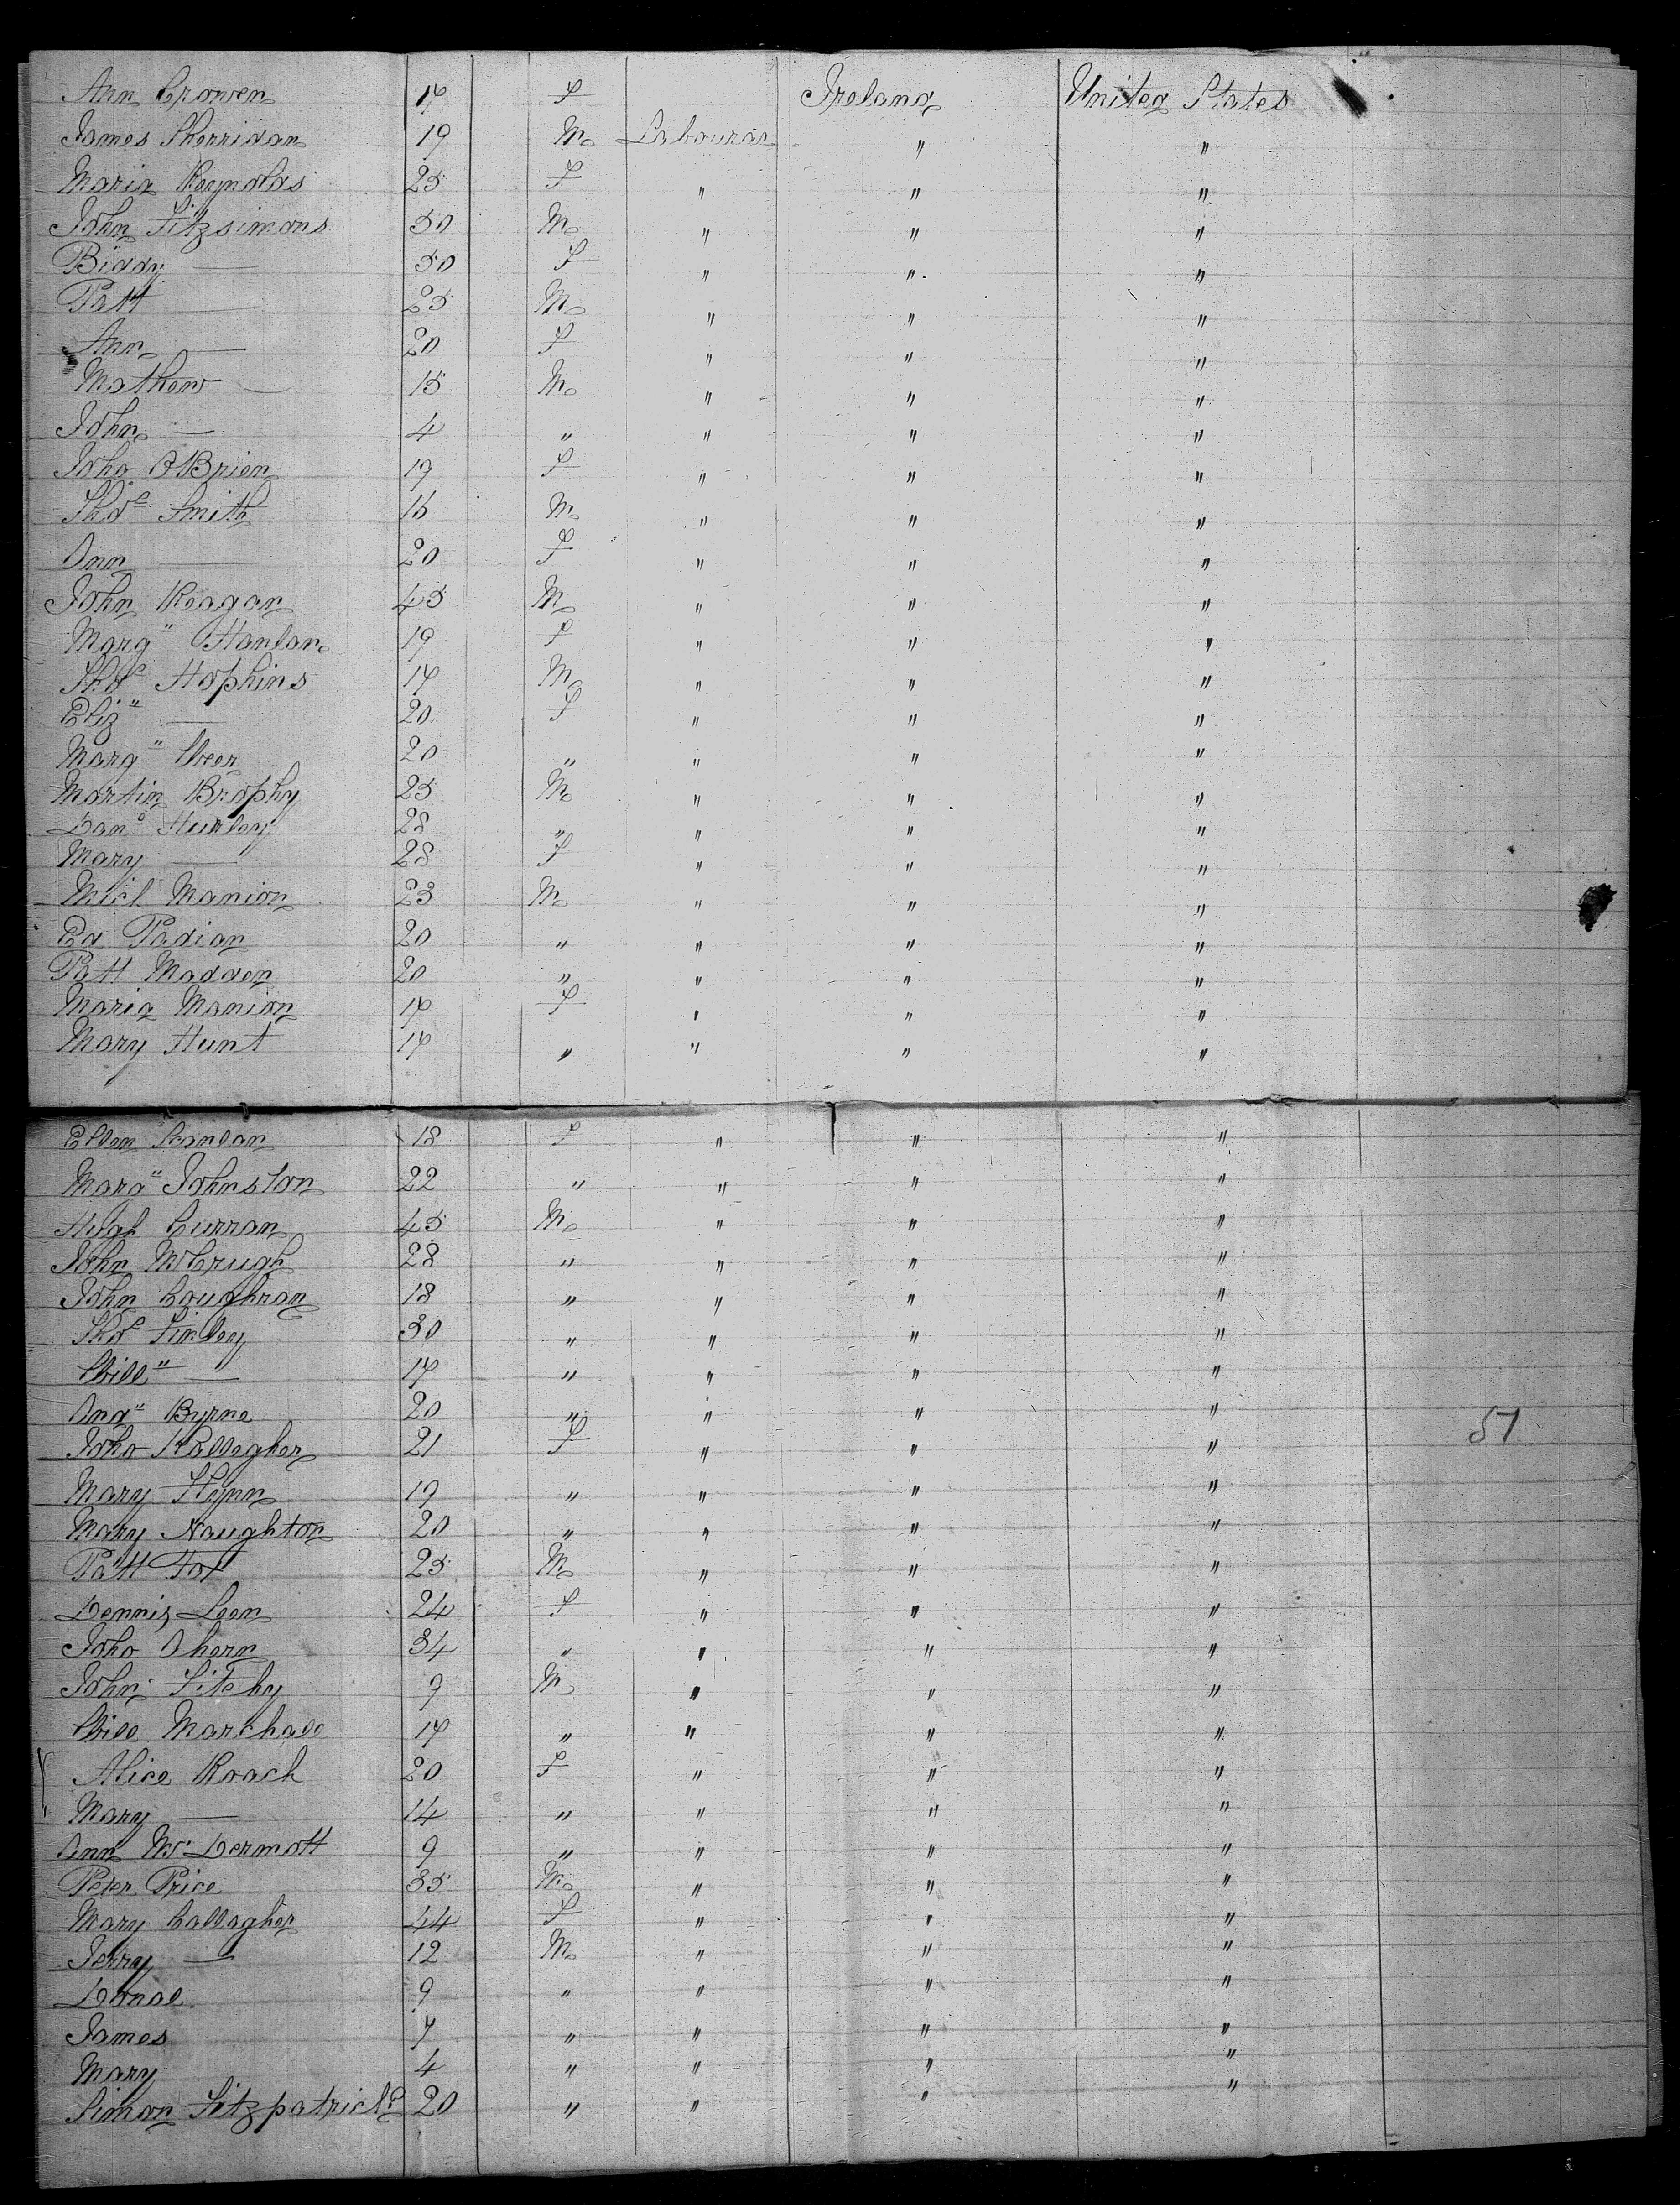 Ann Crowen 17 F Ireland United States
James Sherridan 19 M Labourar " "
Maria Reynolds 25 F " " "
John Fitzsimons 50 M " " "
Biddy — 50 F " " "
Patt — 25 M " " "
Ann — 20 F " " "
Mathew — 15 M " " "
John — 4 " " " "
Joha OBrien 19 F " " "
Thos Smith 16 M " " "
Ann — 20 F " " "
John Reagan 45 M " " "
Marg" Hanlan 19 F " " "
Thos Hopkins 17 M " " "
Eliz" — 20 F " " "
Marg" 20 " " " "
Martin Brophy 25 M " " "
Danl Hurley 28 " " " "
Mary — 28 F " " "
Micl Manion 23 M " " "
Ed Padian 20 " " " "
Patt Madden 20 " " " "
Maria Manion 17 F " " "
Mary Hunt 17 " " " "
Ellen Scanlan 18 F " " "
Marg" Johnston 22 " " " "
Hugh Curran 45 M " " "
John McCrugh 28 " " " "
John Coughran 18 " " " "
Thos Finley 30 " " " "
Will" — 17 " " " "
And" Byrne 20 " " " "
Joha Kallegher 21 F " " "
Mary Flynn 19 " " " "
Mary Naughton 20 " " " "
Patt Fox 25 M " " "
Dennis Leen 24 F " " "
Joha Ahern 34 " " " "
John Fitchy 9 M " " "
Will Marchall 17 " " " "
Alice Roach 20 F " " "
Mary — 14 " " " "
Ann McDermott 9 " " " "
Peter Price 35 M " " "
Mary Callagher 44 F " " "
Jerry — 12 M " " "
Donal 9 " " " "
James 7 " " " "
Mary 4 " " " "
Simon Fitzpatrick 20 " " " "
51